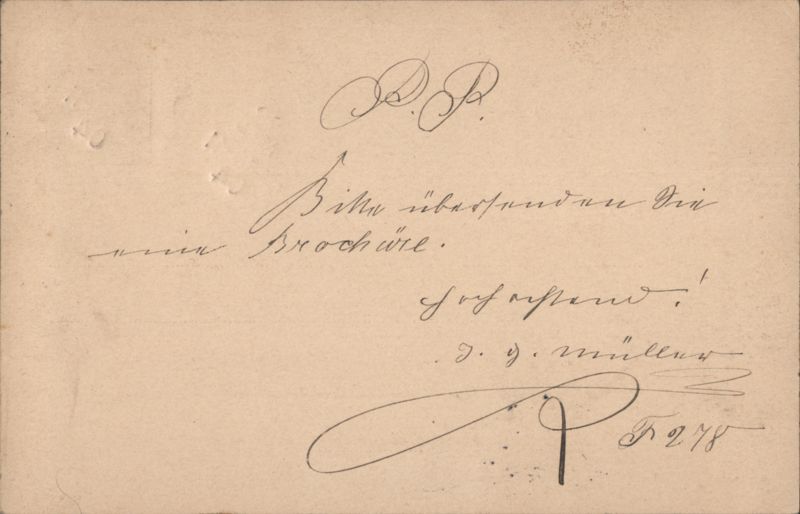 P. P.
Bitte übersenden Sie
eine Brochüre.
Hochachtend!
J. G. Müller
Fr 278